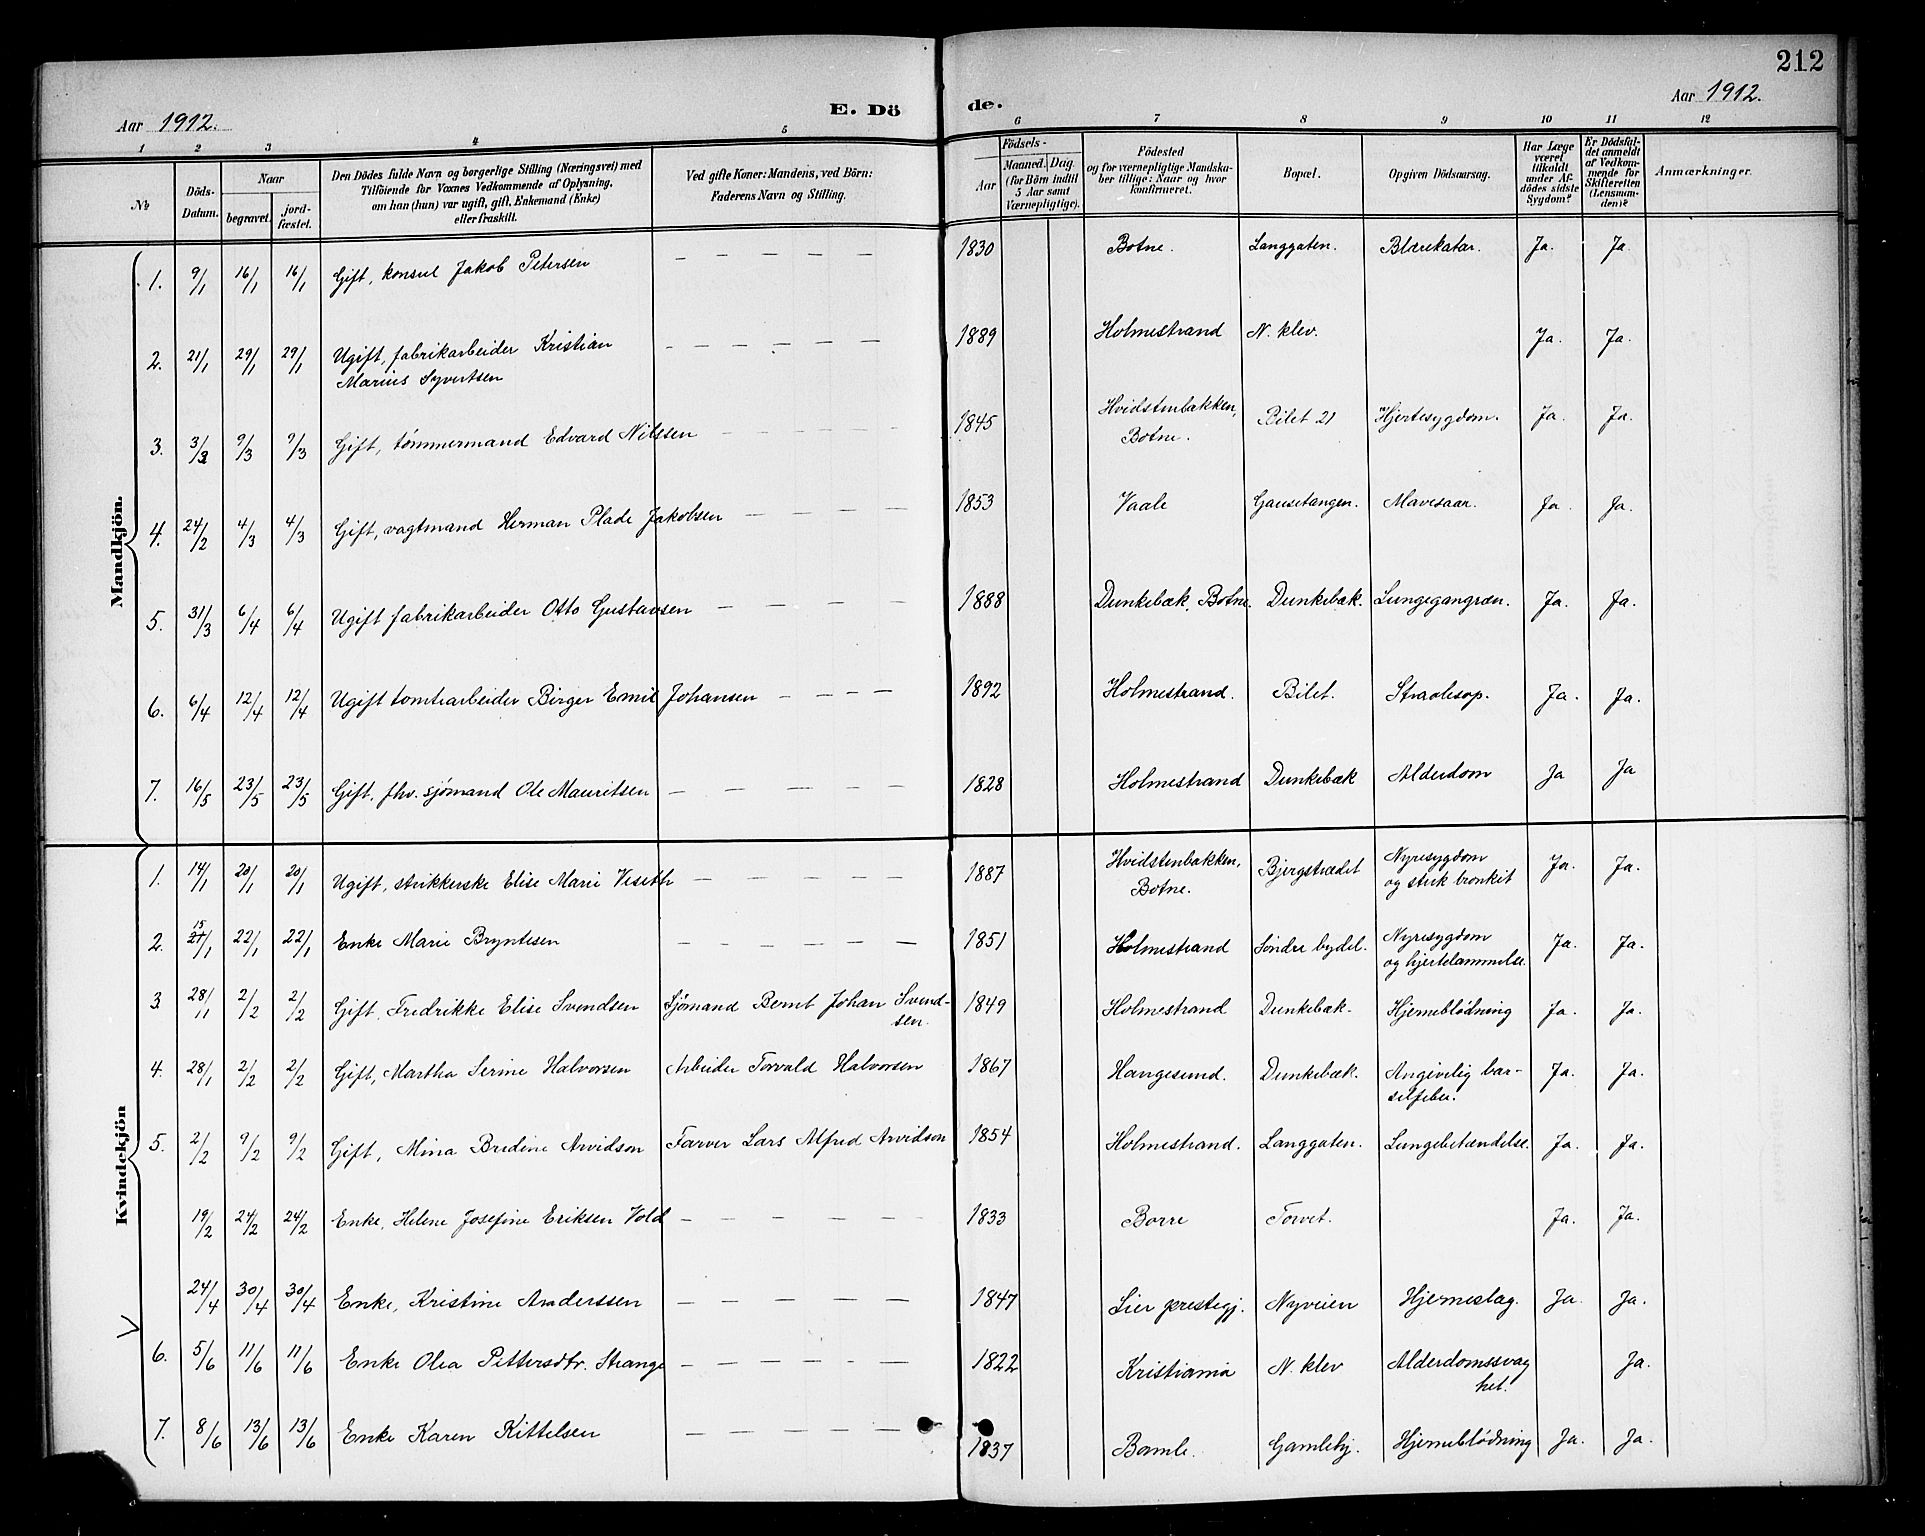 212
Aar 1912. E. Dö de. Aar 1912.
1 2 3 4 5 6 7 8 9 10 11 12
No
Döds-Datum.
Naar
begravet.
jord-fæstet.
Den Dödes fulde Navn og borgerlige Stilling (Næringsvei) med
Tilföiende for Voxnes Vedkommende af Oplysning,
om han (hun) var ugift, gift, Enkemand (Enke)
eller fraskilt.
Ved gifte Koner: Mandens, ved Börn:
Faderens Navn og Stilling.
Födsels-
Aar
Maaned. Dag.
(for Börn indtil
5 Aar samt
Værnepligtige).
Födested
og for værnepligtige Mandska-
ber tillige: Naar og hvor
konfirmeret.
Bopæl.
Opgiven Dödsaarsag.
Har Læge
været
tilkaldt
under Af-
dödes sidste
Sygdom?
Er Dödsfal-
det anmeldt
af Vedkom-
mende for
Skifteretten
(Lensman-
den)?
Anmærkninger.
Mandkjön.
1. 9/1 16/1 16/1 Gift, konsul Jakob Petersen — — — — — 1830 Botne. Langgaten. Blærekatar. Ja. Ja.
2. 21/1 29/1 29/1 Ugift, fabrikarbeider Kristian — — — — — — 1889 Holmestrand N. klev. Ja. Ja.
Marius Syvertsen
3. 3/3 9/3 9/3 Gift, tømmermand Edvard Nilssen — — — — — 1845 Hvidstenbakken, Bilet 21 Hjertesygdom. Ja. Ja.
Botne.
4. 24/2 4/3 4/3 Gift, vagtmand Herman Plade Jakobsen — — — — 1853 Vaale Gausetangen. Mavesaar. Ja. Ja.
5. 31/3 6/4 6/4 Ugift fabrikarbeider Otto Gustavsen — — — — — 1888 Dunkebæk, Botne. Dunkebæk. Lungegangræn. Ja. Ja.
6. 6/4 12/4 12/4 Ugift tomtearbeider Birger Emil Johansen — — — — 1892 Holmestrand. Bilet. Straalesop. Ja. Ja.
7. 16/5 23/5 23/5 Gift, fhv. sjømand Ole Mauritsen — — — — — — 1828 Holmestrand Dunkebæk Alderdom Ja Ja
Kvindekjön
1. 14/1 20/1 20/1 Ugift, strikkerske Elise Marie Viseth — — — — — — 1887 Hvidstenbakken, Bjergstrædet Nyresygdom Ja. Ja.
Botne. og sterk bronkit
2. 15 21/1 22/1 22/1 Enke Marie Bryntesen — — — — — — 1851 Holmestrand Søndre bydel. Nyresygdom Ja. Ja.
og hjertelammelse.
3. 28/11 2/2 2/2 Gift, Fredrikke Elise Svendsen Sjømand Bernt Johan Svend- 1849 Holmestrand Dunkebæk. Hjerneblødning Ja. Ja.
sen.
4. 28/1 2/2 2/2 Gift, Martha Serine Halvorsen Arbeider Torvald Halvorsen 1867 Haugesund. Dunkebæk. Angivelig bar- Ja. Ja.
selfeber.
5. 2/2 9/2 9/2 Gift, Mina Bredine Arvidson Farver Lars Alfred Arvidson 1854 Holmestrand. Langgaten. Lungebetændelse. Ja. Ja.
19/2 24/2 24/2 Enke, Helene Josefine Eriksen Vold — — — — — — 1833 Borre Torvet. Ja. Ja.
24/4 30/4 30/4 Enke, Kristine Anderssen — — — — — — 1847 Lier prestegj. Nyveien Hjerneslag. Ja. Ja.
6. 5/6 11/6 11/6 Enke Olea Pettersdtr. Strange — — — — — 1822 Kristiania N. klev Alderdomssvag Ja.
het.
7. 8/6 13/6 13/6 Enke Karen Kittelsen — — — — — 1837 Bamle. Gamlehj. Hjerneblødning Ja. Ja.